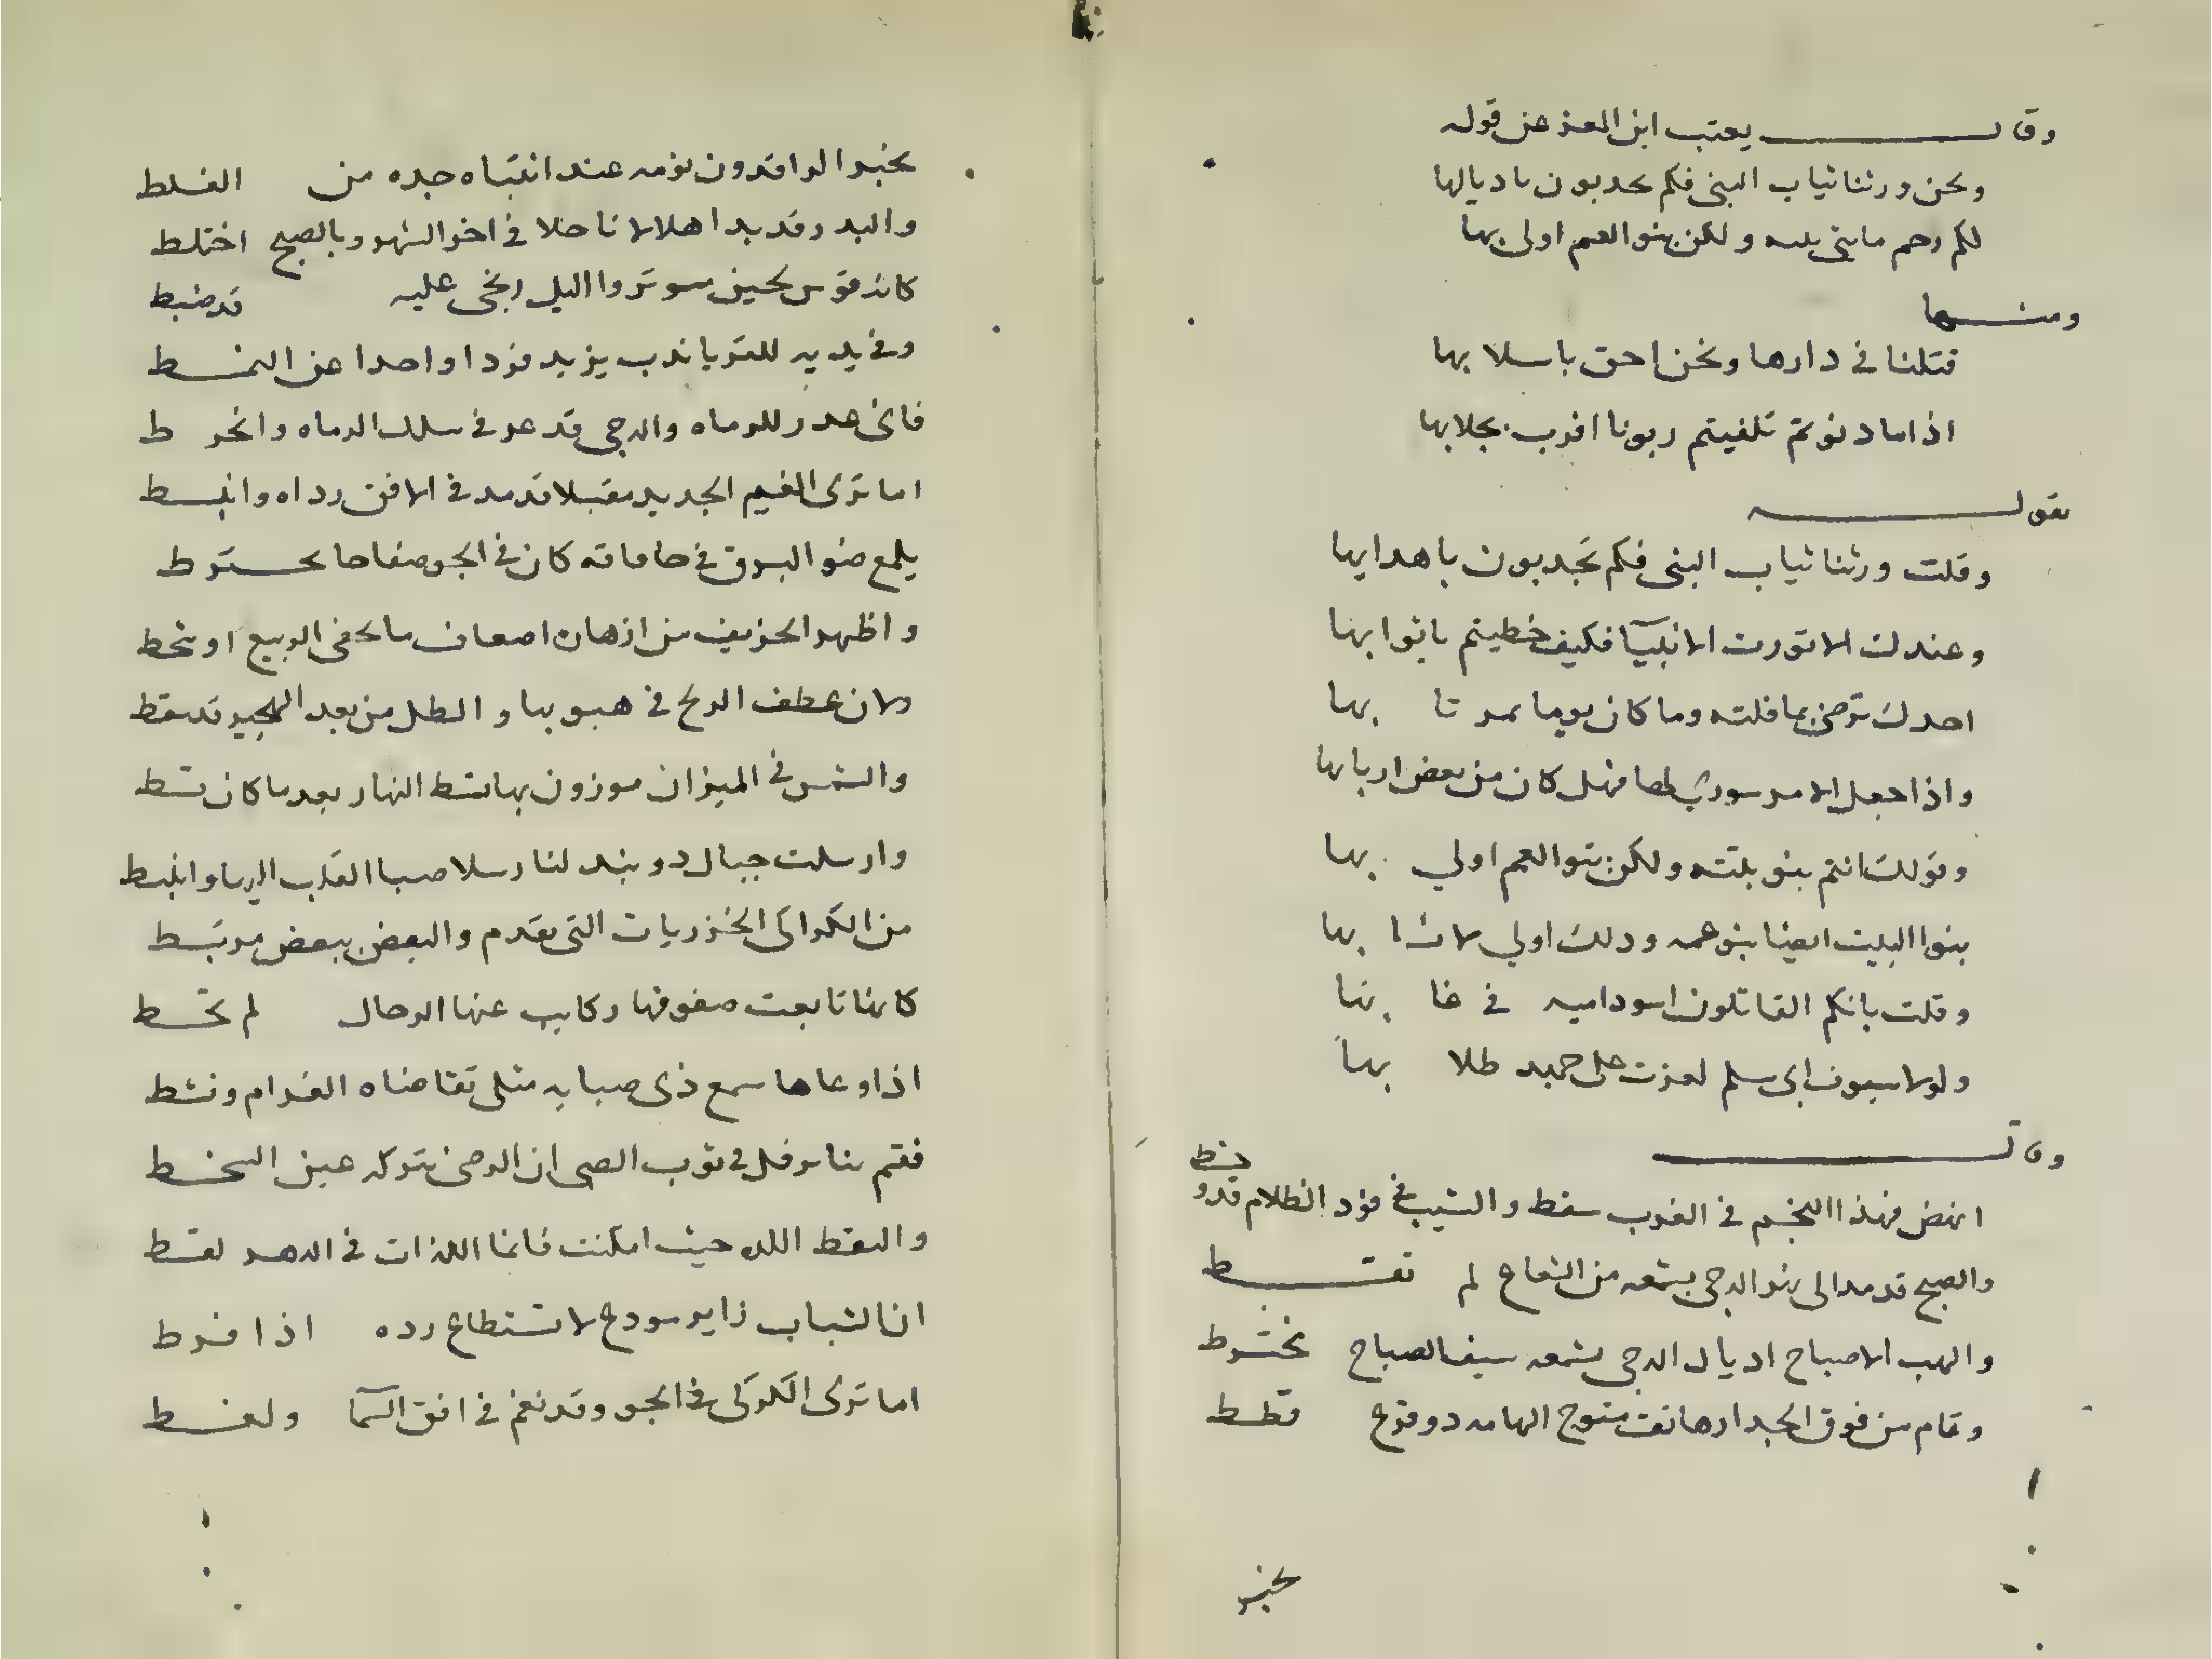 وقال يعتب ابن المعتز عن قوله
ونحن ورثنا ثياب النبى فكم تحدبون باديالها
لكم رحم يا بنى بنته ولكن بنو العم اولى بها
ومنها
قتلنا فى دارها ونحن احق باسلابها
اذا ما دنوتم تلقيتم زبونا اقرب بجلابها
يقول
وقلت ورثنا ثياب النبى فكم تجدبون باهدابها
وعندك لا تورث الانبيآ فكيف خطيتم باثوابها
اجدك ترضى بما قلته وما كان يوما بمرتا بها
واذا جعل الامر سورى لها فهل كان من بعض اربابها
وقولك انتم بنو بنته ولكن بنو العم اولى بها
بنوا البيت ايضا بنو عمه وذلك اولى لانسا بها
وقلت بانكم القاتلون اسود اميه فى غا بها
ولولا سيوف ابى مسلم لعزت على جهد طلا بها
وقال
انهض فهذا النجم فى الغرب سقط والشيب فى فود الظلام قد وخط
والصبح قد مد الى نحر الدجى يشعه من الشعاع لم تقتط
والهب الاصباح اديال الدجى بشمعه سيف الصباح تخترط
وقام من فوق الجدار هاتف متوج الهامه ذو فرع قطط
يخبر
يخبر الراقدون نومه عند انتباه جده من الغلط
والبدر قد بدا هلالا ناحلا فى اخر الشهر وبالصبح اختلط
كانه قوس لجين موتر والليل زنجى عليه قد ضبط
وفى يديه للثريا ندب يزيد فردا واحدا عن النمط
فاى عدر للرماه والدجى قد عد فى سلك الرماه وانخرط
اما ترى الغيم الجديد مقبلا قد مد فى الافق رداه وانبسط
يلمع ضو البرق فى حافاته كان فى الجو صفاحا تخترط
واظهر الخريف من ازهاره اضعاف ما اخفى الربيع او شحط
ولان عطف الريح فى هبوبها والطل من بعد الهجير قد سقط
والشمس فى الميزان موزون بها قسط النهار بعدما كان قسط
وارسلت جبال دربند لنا رسلا صبا القلب اليها وانبسط
من الكراكى الخزريات التى تقدم والبعض ببعض مرتبط
كانها تابعت صفوفها ركايب عنها الرحال لم تحط
اذا وعاها سمع ذى صبابه مثلى تقاضاه الغرام ونشط
فقم بنا نرفل فى ثوب الصبى ان الرضى بتركه عين السخط
والتقط اللذه حيث امكنت فانما اللذات فى الدهر لقط
ان الشباب زاير مودع لا تستطاع رده اذا فرط
اما ترى الكركى فى الجو وقد نغم فى افق السمآ ولغط